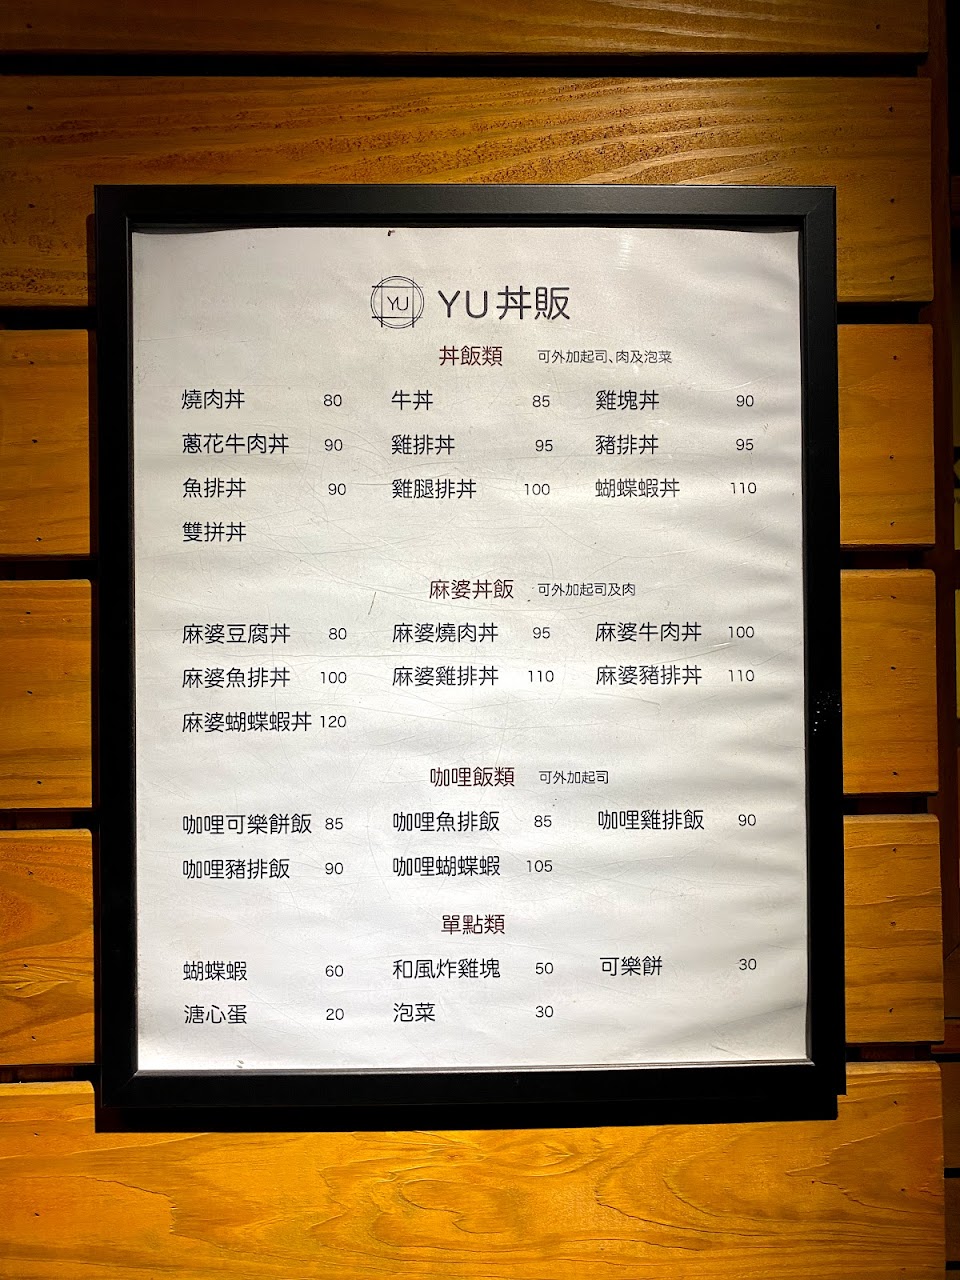 YU YU丼販
丼飯類 可外加起司、肉及泡菜
燒肉丼 80 牛丼 85 雞塊丼 90
蔥花牛肉丼 90 雞排丼 95 豬排丼 95
魚排丼 90 雞腿排丼 100 蝴蝶蝦丼 110
雙拼丼
麻婆丼飯 可外加起司及肉
麻婆豆腐丼 80 麻婆燒肉丼 95 麻婆牛肉丼 100
麻婆魚排丼 100 麻婆雞排丼 110 麻婆豬排丼 110
麻婆蝴蝶蝦丼 120
咖哩飯類 可外加起司
咖哩可樂餅飯 85 咖哩魚排飯 85 咖哩雞排飯 90
咖哩豬排飯 90 咖哩蝴蝶蝦 105
單點類
蝴蝶蝦 60 和風炸雞塊 50 可樂餅 30
溏心蛋 20 泡菜 30